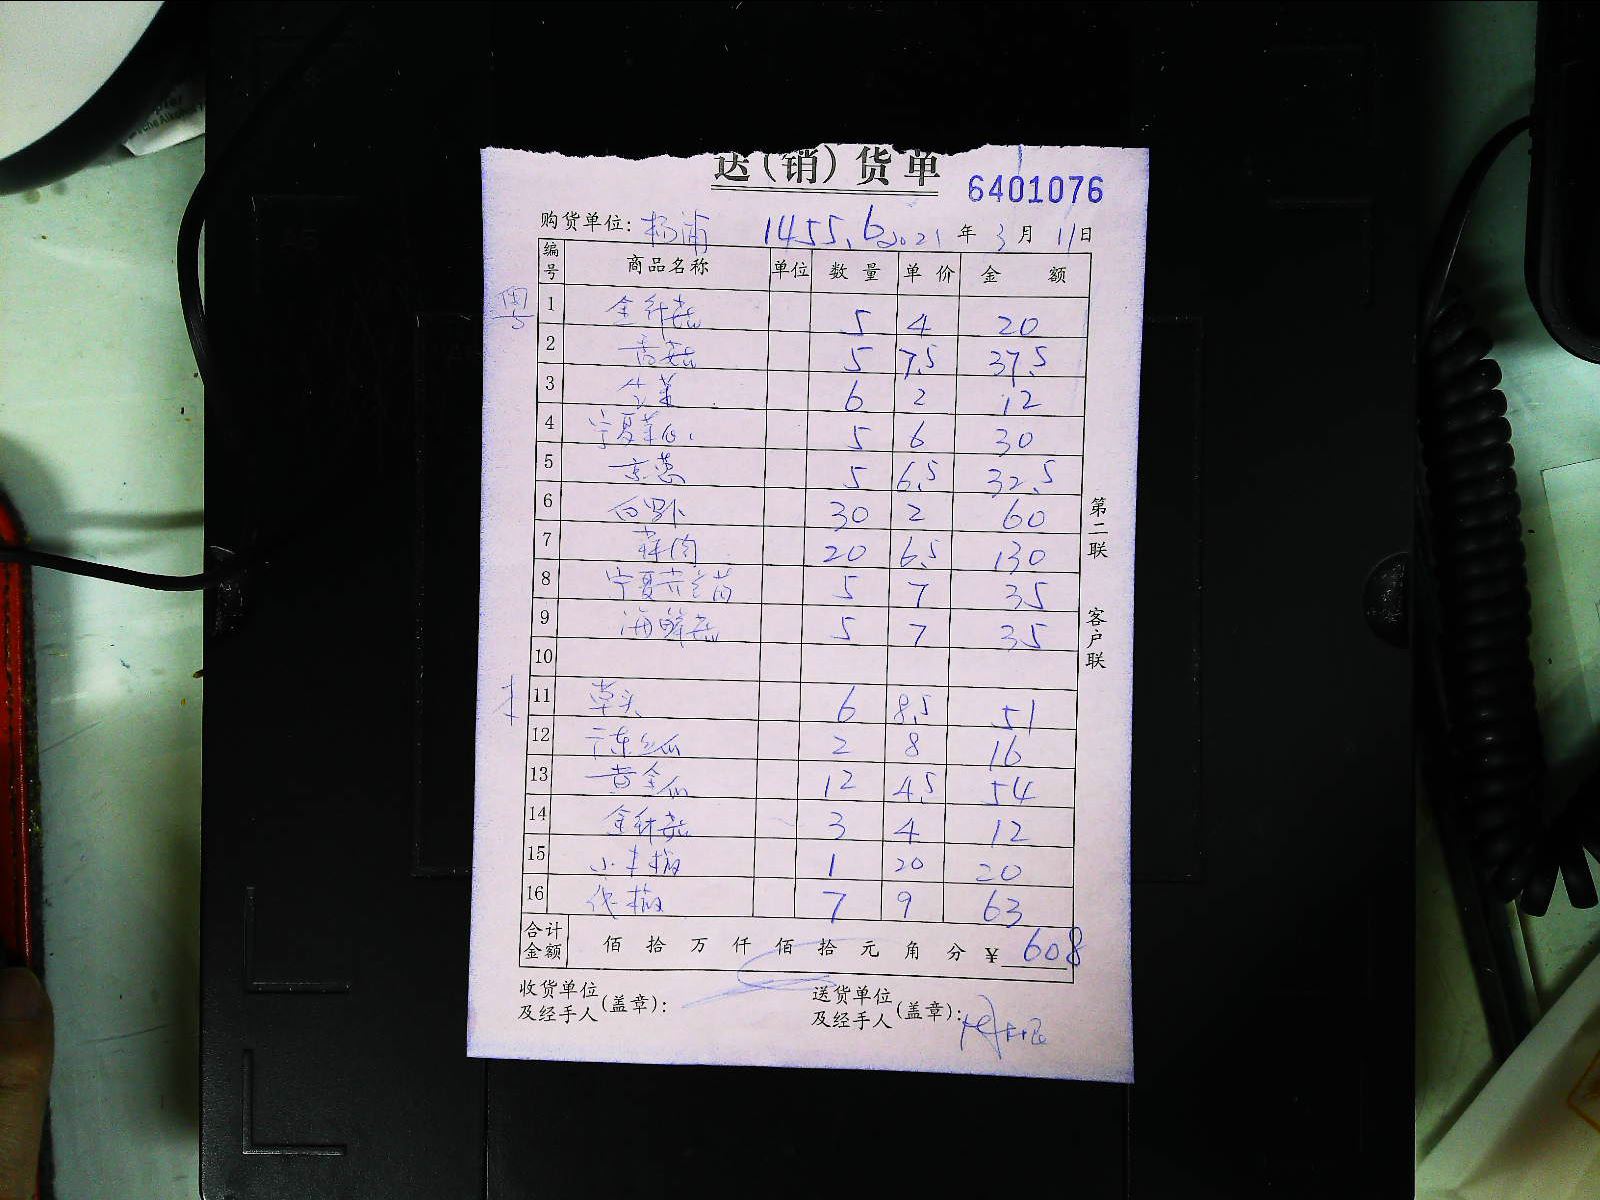 送(销)货单
6401076
购货单位: 杨浦 1455.6 2021 年 3 月 11 日
编号 商品名称 单位 数量 单价 金额
1 金针菇 5 4 20
2 香菇 5 7.5 37.5
3 生菜 6 2 12
4 宁夏菜心 5 6 30
5 京葱 5 6.5 32.5
6 白罗卜 30 2 60
7 蒜肉 20 6.5 130
8 宁夏芥兰苗 5 7 35
9 海鲜菇 5 7 35
10
11 草头 6 8.5 51
12 广东丝瓜 2 8 16
13 黄金瓜 12 4.5 54
14 金针菇 3 4 12
15 小丰椒 1 20 20
16 7 9 63
合计金额 佰 拾 万 仟 佰 拾 元 角 分 ¥ 608
收货单位及经手人(盖章):
送货单位及经手人(盖章):
第二联 客户联